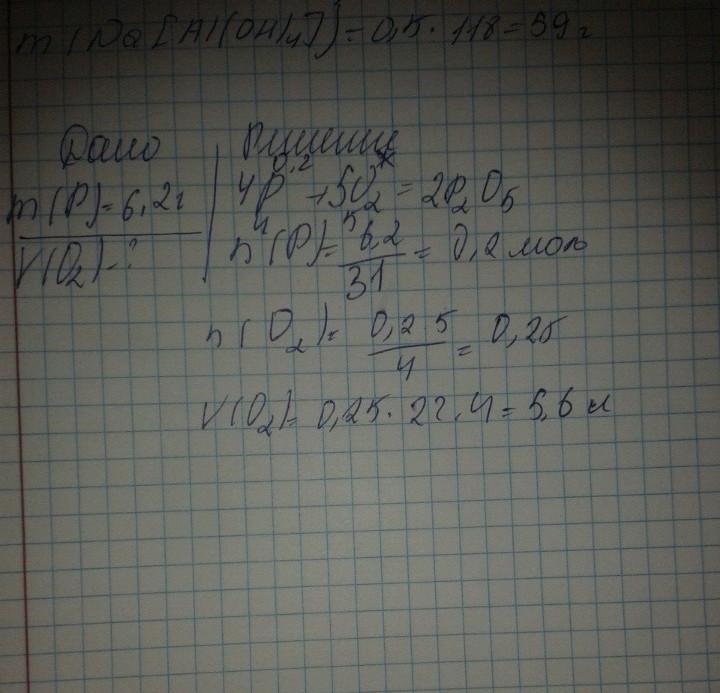 m(Na[Al(OH)4]) = 0,5 · 118 = 59 г
Дано Решение
0,2 x
m(P) = 6,2 г 4P + 5O2 = 2P2O5
4 5
V(O2) - ? n(P) = 6,2/31 = 0,2 моль
n(O2) = 0,2 5/4 = 0,25
V(O2) = 0,25 · 22,4 = 5,6 л